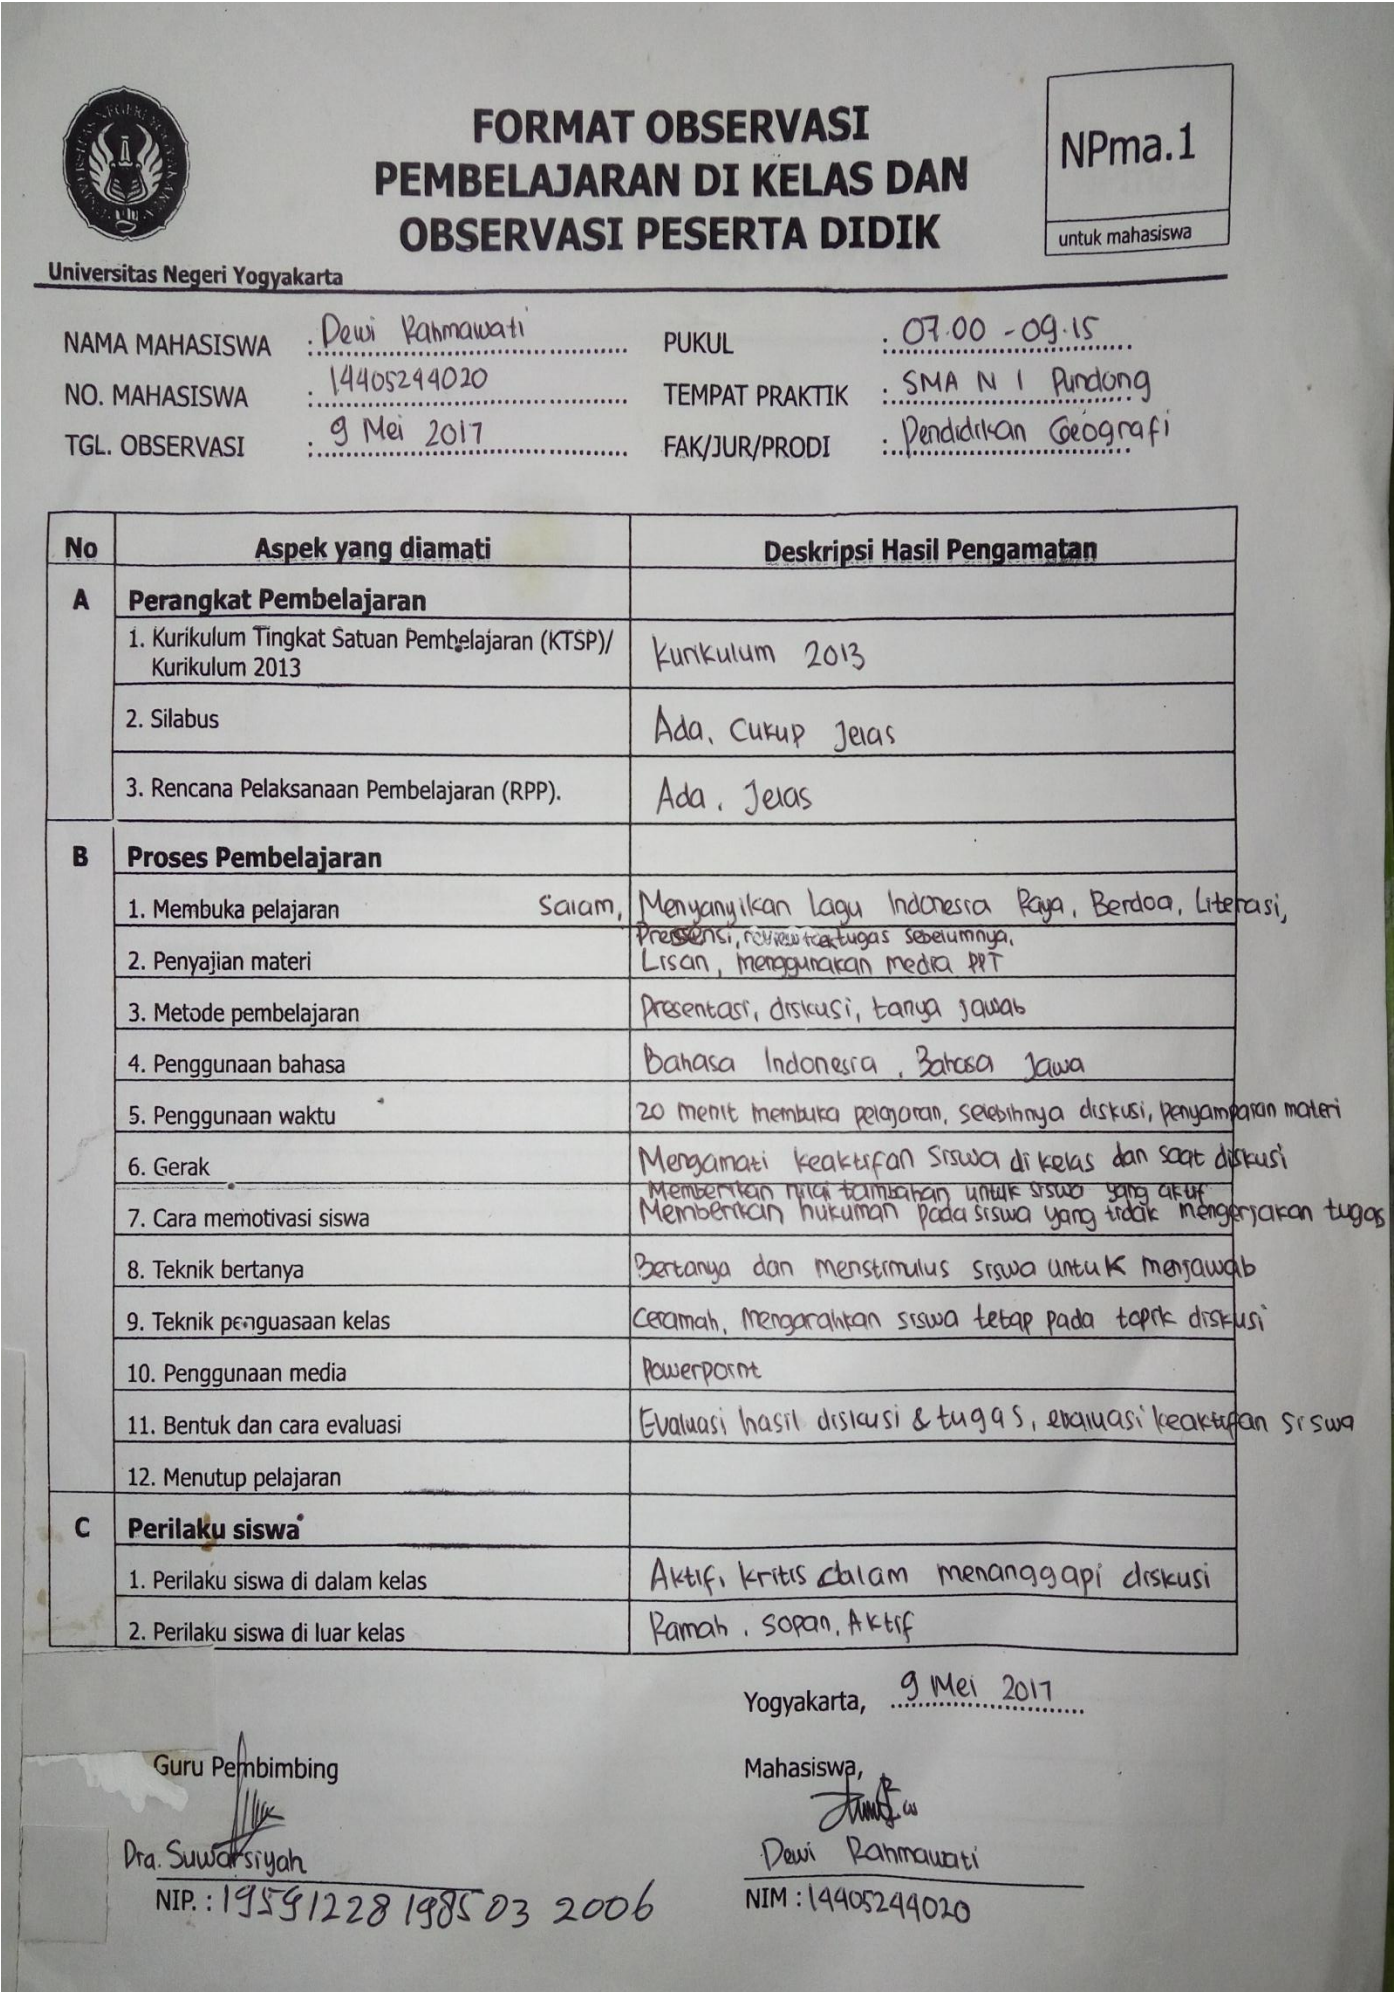 FORMAT OBSERVASI
PEMBELAJARAN DI KELAS DAN
OBSERVASI PESERTA DIDIK
NPma.1
untuk mahasiswa
Universitas Negeri Yogyakarta
NAMA MAHASISWA : Dewi Rahmawati
PUKUL : 07.00 - 09.15
NO. MAHASISWA : 14405244020
TEMPAT PRAKTIK : SMA N 1 Pundong
TGL. OBSERVASI : 9 Mei 2017
FAK/JUR/PRODI : Pendidikan Geografi
No Aspek yang diamati Deskripsi Hasil Pengamatan
A Perangkat Pembelajaran
1. Kurikulum Tingkat Satuan Pembelajaran (KTSP)/
Kurikulum 2013
Kurikulum 2013
2. Silabus Ada, Cukup Jelas
3. Rencana Pelaksanaan Pembelajaran (RPP). Ada, Jelas
B Proses Pembelajaran
1. Membuka pelajaran Salam, Menyanyikan Lagu Indonesia Raya, Berdoa, Literasi,
Presensi, review tugas sebelumnya.
2. Penyajian materi Lisan, menggunakan media PPT
3. Metode pembelajaran Presentasi, diskusi, tanya jawab
4. Penggunaan bahasa Bahasa Indonesia, Bahasa Jawa
5. Penggunaan waktu 20 menit membuka pelajaran, selebihnya diskusi, penyampaian materi
6. Gerak Mengamati keaktifan siswa di kelas dan saat diskusi
Memberikan nilai tambahan untuk siswa yang aktif
7. Cara memotivasi siswa Memberikan hukuman pada siswa yang tidak mengerjakan tugas
8. Teknik bertanya Bertanya dan menstimulus siswa untuk menjawab
9. Teknik penguasaan kelas Ceramah, mengarahkan siswa tetap pada topik diskusi
10. Penggunaan media Powerpoint
11. Bentuk dan cara evaluasi Evaluasi hasil diskusi & tugas, evaluasi keaktifan siswa
12. Menutup pelajaran
C Perilaku siswa
1. Perilaku siswa di dalam kelas Aktif, kritis dalam menanggapi diskusi
2. Perilaku siswa di luar kelas Ramah, sopan, Aktif
Yogyakarta, 9 Mei 2017
Guru Pembimbing
Mahasiswa,
Dra. Suwarsiyah
Dewi Rahmawati
NIP. : 19591228 198503 2006
NIM : 14405244020